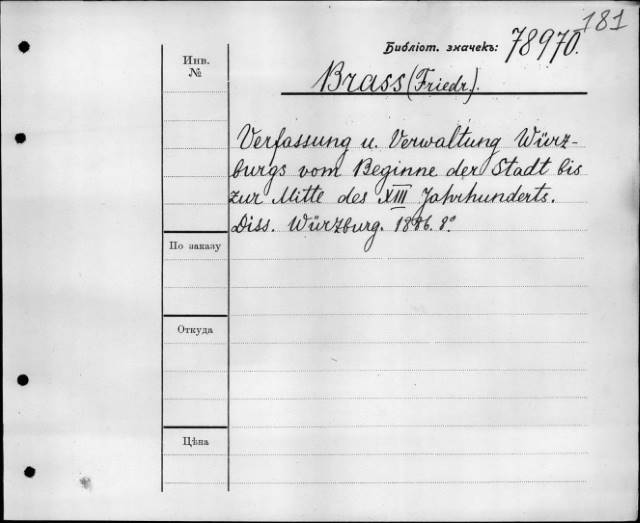 181
Библіот. значекъ: 78970.
Инв.
№
Brass (Friedr.).
Verfassung u. Verwaltung Würz-
burgs vom Beginne der Stadt bis
zur Mitte des XIII Jahrhunderts.
Diss. Würzburg. 1886. 8°
По заказу
Откуда
Цѣна